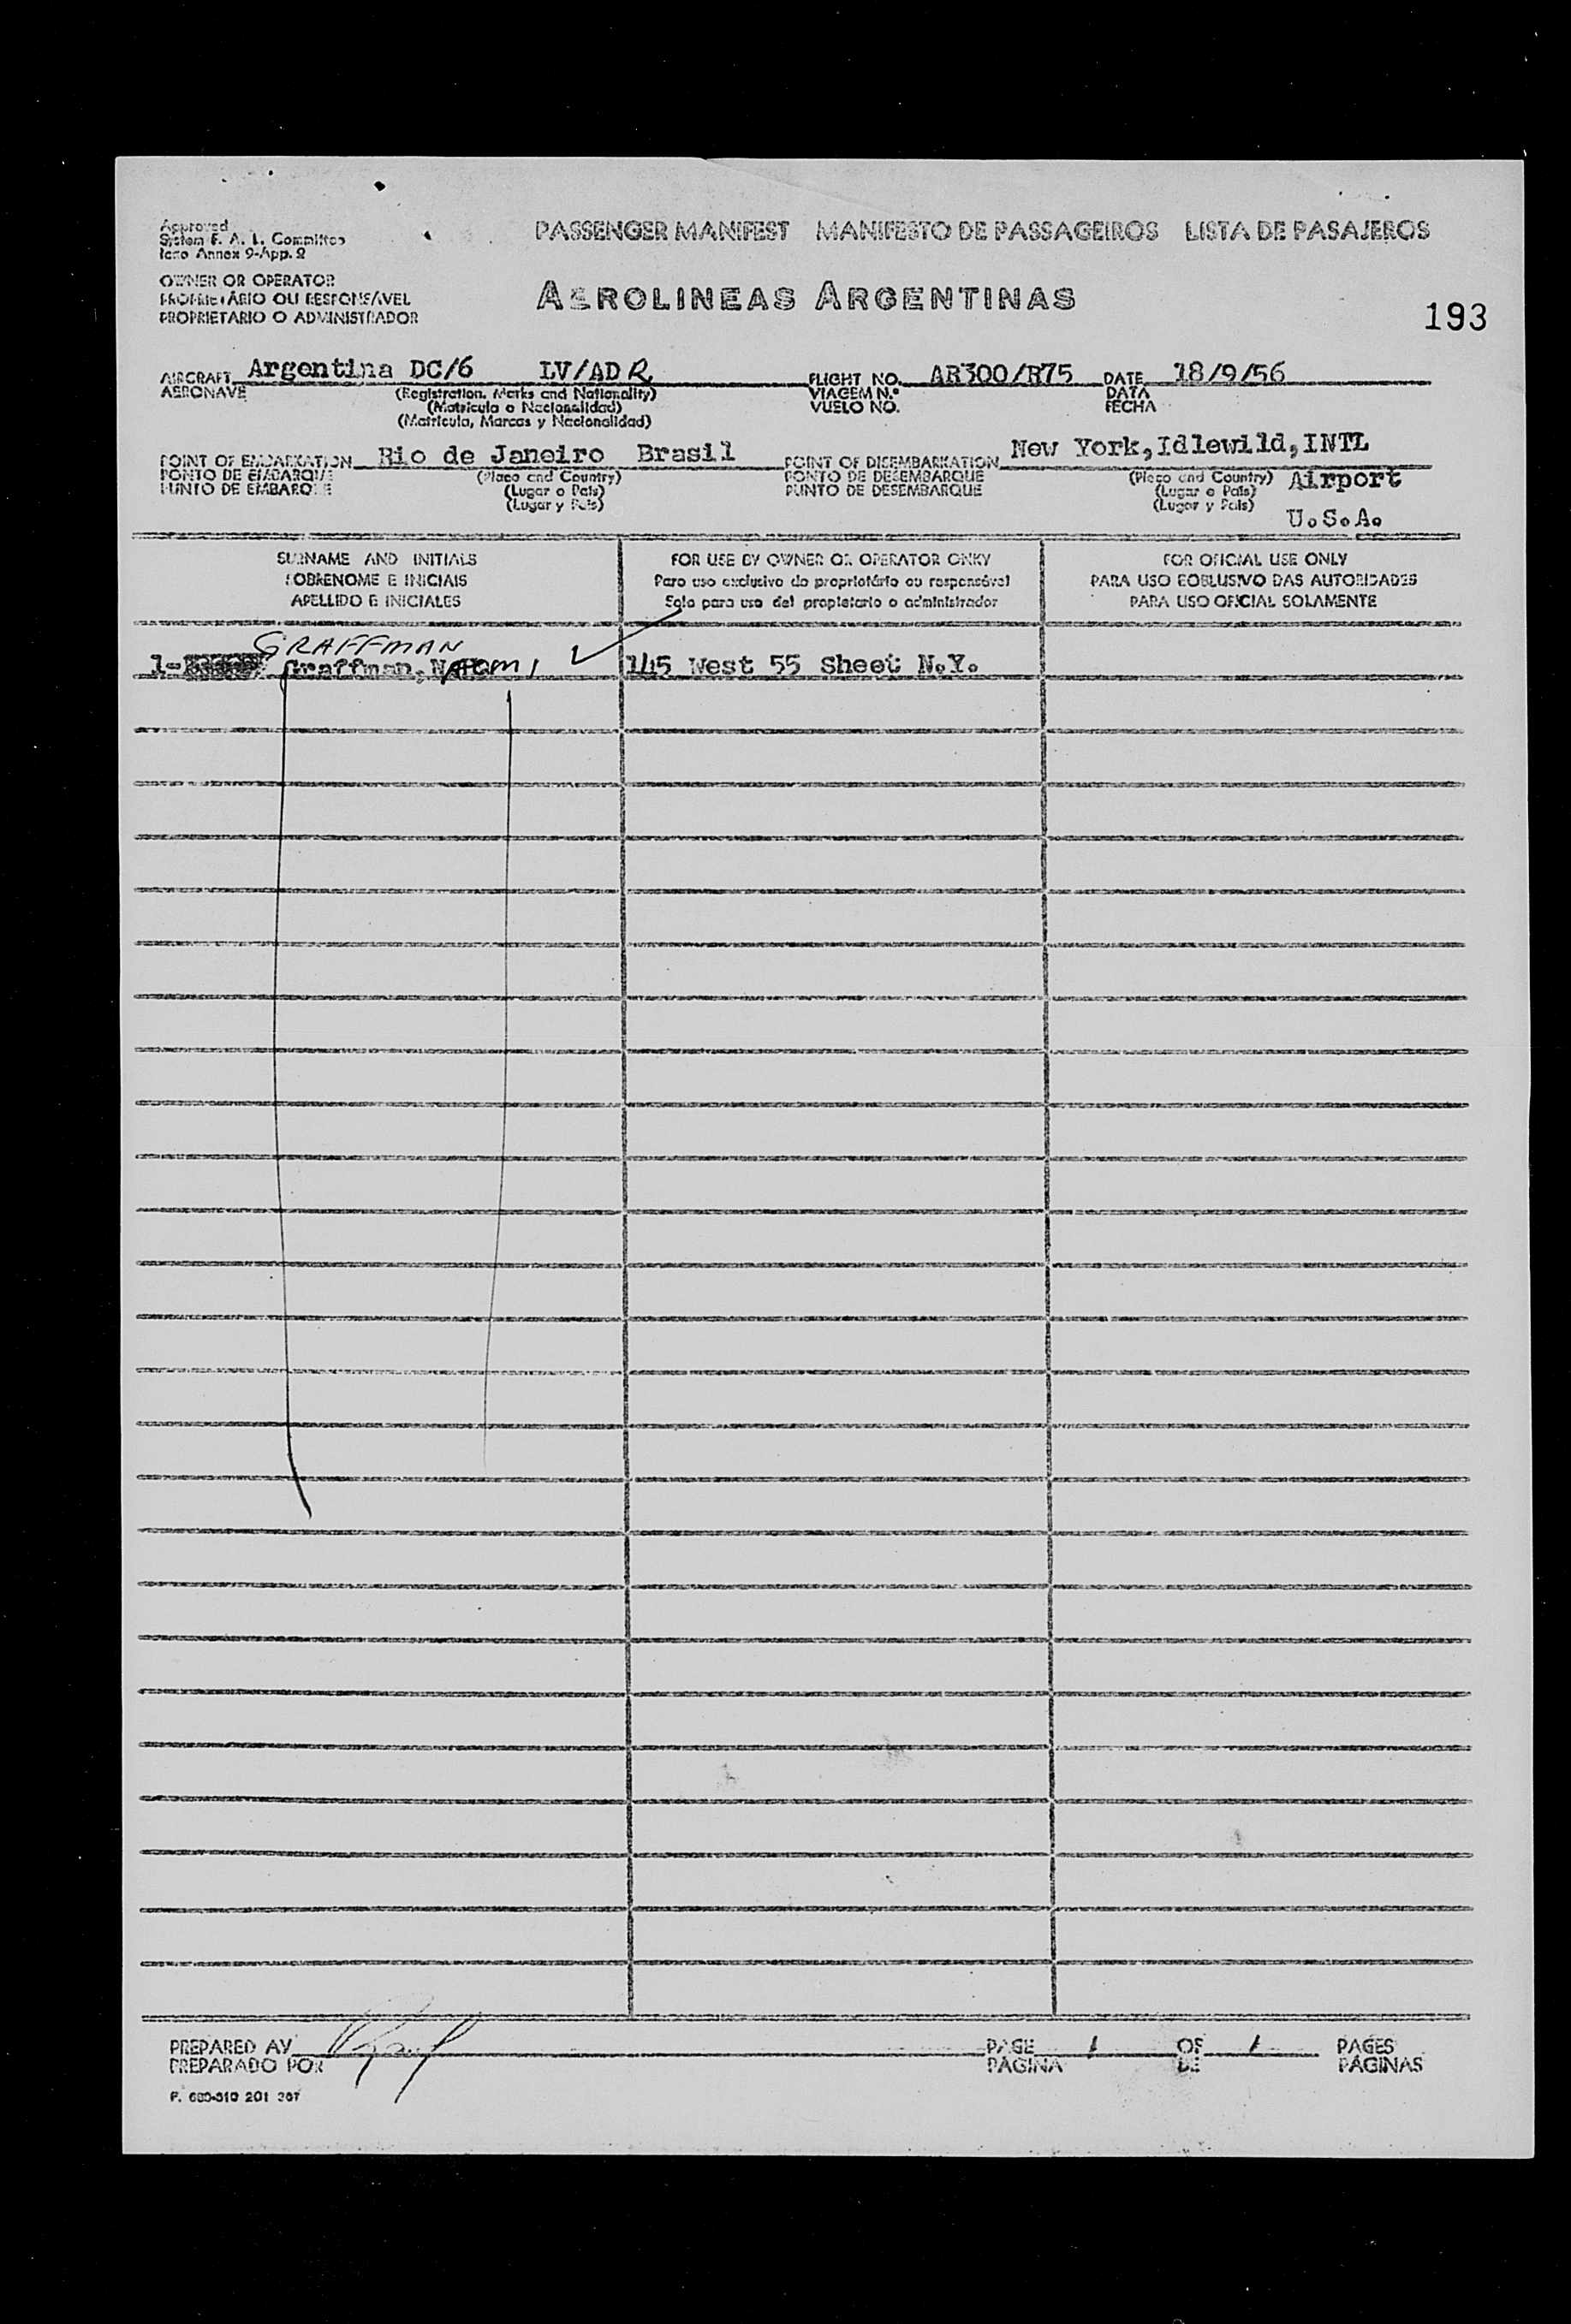 Approved
System F. A. L. Committee
Icao Annex 9-App. 2
PASSENGER MANIFEST MANIFESTO DE PASSAGEIROS LISTA DE PASAJEROS
OWNER OR OPERATOR
PROPRIETÁRIO OU RESPONSÁVEL
PROPRIETARIO O ADMINISTRADOR
AEROLINEAS ARGENTINAS
193
AIRCRAFT Argentina DC/6 LV/ADR FLIGHT NO. AR300/R75 DATE 18/9/56
AERONAVE (Registration, Marks and Nationality) VIAGEM N.º DATA
(Matricula o Nacionalidad) VUELO NO. FECHA
(Matricula, Marcas y Nacionalidad)
POINT OF EMBARKATION Rio de Janeiro Brasil POINT OF DISEMBARKATION New York,Idlewild,INTL
PONTO DE EMBARQUE (Place and Country) PONTO DE DESEMBARQUE (Place and Country) Airport
PUNTO DE EMBARQUE (Lugar o País) PUNTO DE DESEMBARQUE (Lugar o País)
(Lugar y País) (Lugar y País) U.S.A.
SURNAME AND INITIALS FOR USE BY OWNER OR OPERATOR ONKY FOR OFICIAL USE ONLY
SOBRENOME E INICIAIS Para uso exclusivo do proprietário ou responsável PARA USO EOBLUSIVO DAS AUTORIDADES
APELLIDO E INICIALES Solo para uso del propietario o administrador PARA USO OFICIAL SOLAMENTE
GRAFFMAN
1- Graffman, NAOMI ✓ 145 West 55 Sheet N.Y.
PREPARED AV PAGE 1 OF 1 PAGES
PREPARADO POR PÁGINA DE PÁGINAS